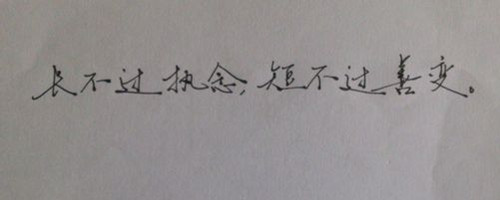 长不过执念,短不过善变。